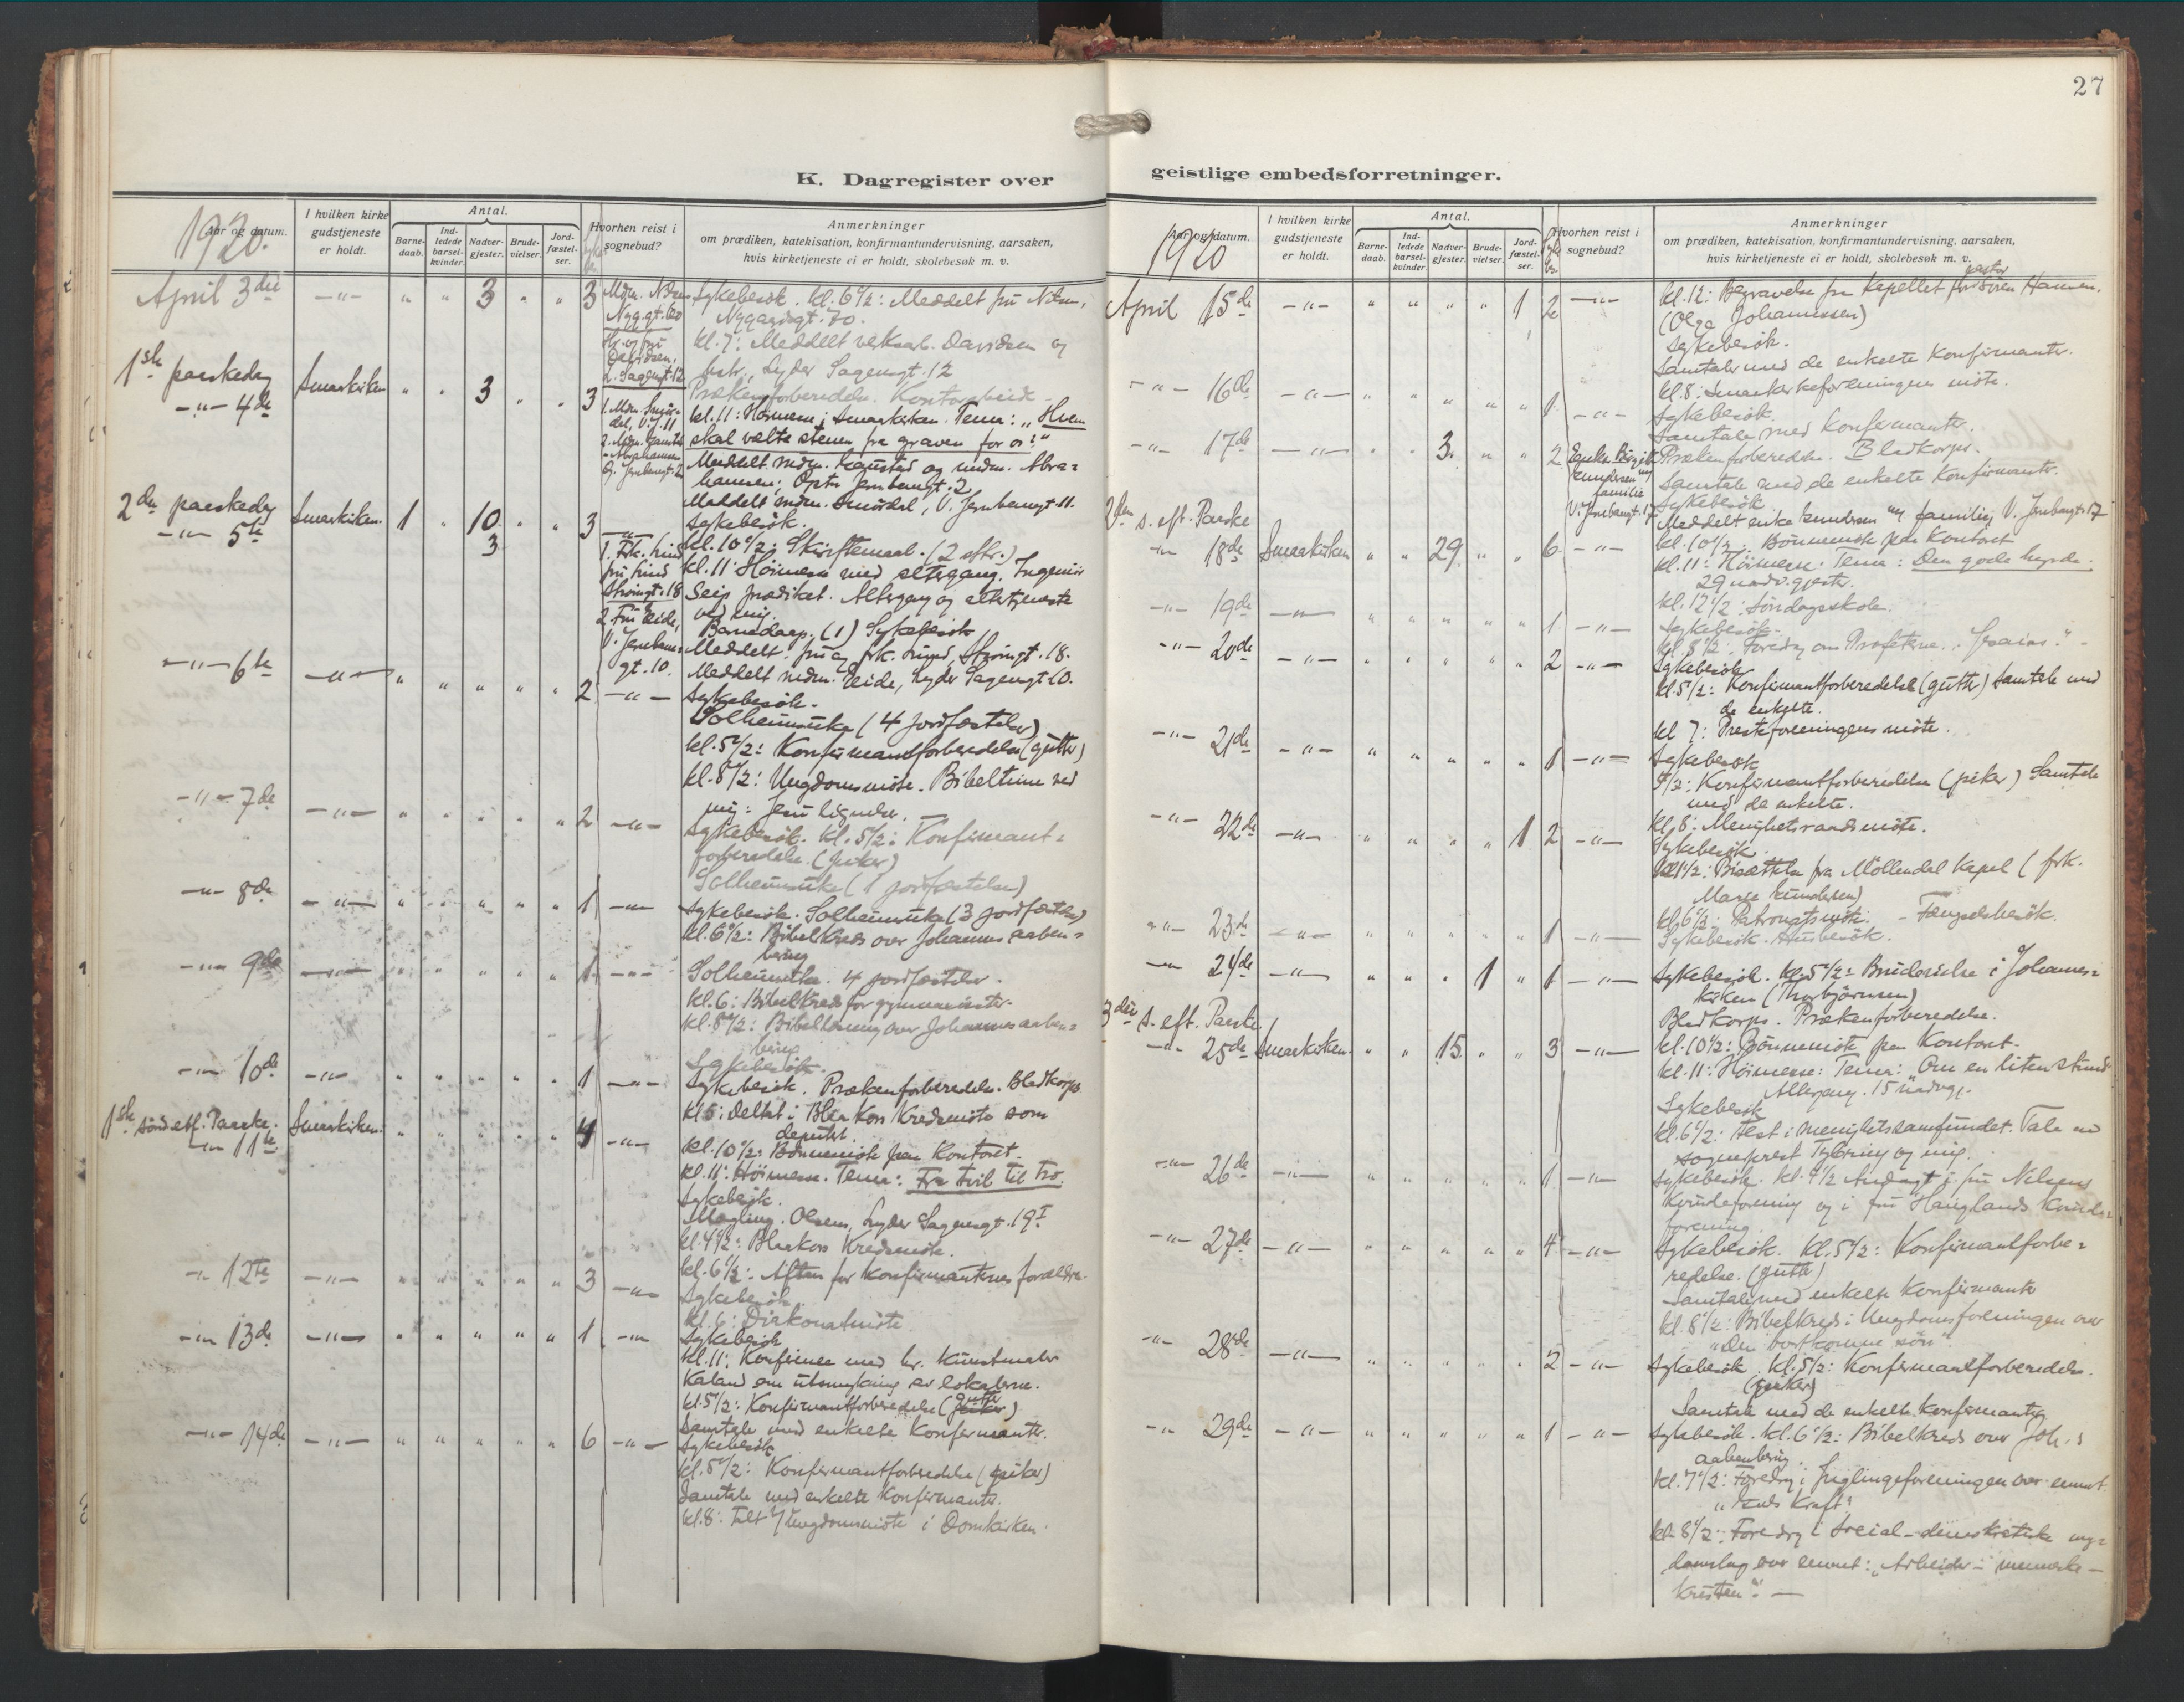 27
K. Dagregister over
geistlige embedsforretninger.
1920.
Aar og datum.
I hvilken kirke gudstjeneste er holdt.
Antal.
Barne-daab.
Ind-ledede barsel-kvinder.
Nadver-gjester.
Brude-vielser.
Jord-fæstel-ser.
Hvorhen reist i sognebud?
Anmerkninger
om prædiken, katekisation, konfirmantundervisning, aarsaken,
hvis kirketjeneste ei er holdt, skolebesøk m. v.
April 3die -"- " " 3 " " 3
Sykebesök. kl. 6 1/2: Meddelt fru
Nygaardsgt. 70.
kl. 7: Meddelt verksarb. Davidsen og
hstr., Lyder Sagensgt. 12
Prækenforberedelse. Kontorarbeide
1ste paaskedag
-"- 4de Smaakirken " " 3 " " 3
kl. 11: Höimesse i Smaakirken. Tema: "Hvem
skal vælte stenen fra graven for os?"
Meddelt mdm. og mdm. Abra=
hamsen, Jernbanegt. 2
Meddelt mdm. Smördal, V. Jernbanegt. 11.
Sykebesök.
2den paaskedag
-"- 5te Smaakirken. 1 " 10 " " 3
3
kl. 10 1/2: Skriftemaal. (2 )
kl. 11: Höimesse med altergang. Ingeniör
Seip prædiket. Altergang og altertjeneste
ved mig.
Barnedaap. (1) Sykebesök
Meddelt fru og frk. Lund, Strömgt. 18.
Meddelt mdm. Eide, Lyder Sagensgt 10.
-"- 6te -"- " " " " " 2 -"-
Sykebesök.
Solheimsuke (4 jordfæstelser)
kl. 5 1/2: Konfirmantforberedelse (gutter)
kl. 8 1/2: Ungdomsmöte. Bibeltime ved
mig: Jesu lignelser.
-"- 7de -"- " " " " " 2 -"-
Sykebesök. kl. 5 1/2: Konfirmant=
forberedelse (piker)
Solheimsuke (1 jordfæstelse)
-"- 8de -"- " " " " " 1 -"-
Sykebesök. Solheimsuke (3 jordfæstelser)
kl. 6 1/2: Bibelkreds over Johannes aaben=
baring
-"- 9de -"- " " " " " 1 -"-
Solheimsuke. 4 jordfæstelser.
kl. 6: Bibelkreds for gymnasiaster.
kl. 8 1/2: Bibellæsning over Johannes aaben=
baring
Sykebesök.
-"- 10de -"- " " " " " 1 -"-
Sykebesök. Prækenforberedelse. Bladkorps
kl 5: deltat i Blaa Kors Kredsmöte som
deputert.
1ste sönd. eft. Paaske.
-"- 11te Smaakirken. " " " " " 4 -"-
kl. 10 1/2: Bönnemöte paa Kontoret.
kl. 11: Höimesse. Tema: Fra tvil til tro.
Sykebesök.
Mægling. Olsens, Lyder Sagensgt. 19 I
kl. 4 1/2: Blaakors Kredsmöte.
kl. 6 1/2: Aften for Konfirmanternes forældre.
-"- 12te -"- " " " " " 3 -"-
Sykebesök.
kl. 6: Diakonatmöte
-"- 13de -"- " " " " " 1 -"-
Sykebesök
kl. 11: Konferense med hr. Kunstmaler
Kaland om utsmykning av lokalerne.
kl. 5 1/2: Konfirmantforberedelse (gutter)
Samtale med enkelte Konfirmanter.
-"- 14de -"- " " " " " 6 -"-
Sykebesök
kl. 5 1/2: Konfirmantforberedelse (piker)
Samtale med enkelte Konfirmanter.
kl. 8: Talt i Ungdomsmöte i Domkirken.
1920
Aar og datum.
I hvilken kirke gudstjeneste er holdt.
Antal.
Barne-daab.
Ind-ledede barsel-kvinder.
Nadver-gjester.
Brude-vielser.
Jord-fæstel-ser.
Hvorhen reist i sognebud?
Anmerkninger
om prædiken, katekisation, konfirmantundervisning, aarsaken,
hvis kirketjeneste ei er holdt, skolebesøk m. v.
April 15de -"- " " " " 1 2 -"-
kl. 12: Begravelse fra Kapellet for pastor Hansen.
(Olga Johannessen)
Sykebesök.
Samtaler med de enkelte Konfirmanter.
kl. 8: Smaakirkeforeningens möte.
-"- 16de -"- " " " " " 1 -"-
Sykebesök.
Samtale med Konfirmanter.
-"- 17de -"- " " 3 " " 2
Prækenforberedelse. Bladkorps.
Samtale med de enkelte Konfirmanter.
Sykebesök
Meddelt enke Gundersen m/ familie, V. Jernbanegt. 17
2den s. eft. Paaske
-"- 18de Smaakirken " " 29 " " 6 -"-
kl. 10 1/2: Bönnemöte paa Kontoret
kl. 11: Höimesse. Tema: Den gode hyrde.
29 nadv. gjester.
kl. 12 1/2: Söndagsskole.
-"- 19de -"- " " " " " 1 -"-
Sykebesök.
kl. 8 1/2: Foredrag om Profeterne. "Jesaias." -
-"- 20de -"- " " " " " 2 -"-
Sykebesök
kl. 5 1/2: Konfirmantforberedelse (gutter) Samtale med
de enkelte.
kl 7: Presteforeningens möte.
-"- 21de -"- " " " " " 1 -"-
Sykebesök
5 1/2: Konfirmantforberedelse (piker) Samtale
med de enkelte.
kl. 8: Menighetsraadsmöte.
-"- 22de -"- " " " " 1 2 -"-
Sykebesök.
Bisættelse fra Möllendal Kapel (frk.
Marie Gundersen)
kl. 6 1/2: Patronatsmöte. - Fængselsbesök.
-"- 23de -"- " " " " " 1 -"-
Sykebesök. Husbesök.
-"- 24de -"- " " " 1 " 1 -"-
Sykebesök. kl. 5 1/2: Brudevielse i Johannes=
kirken (Thorbjörnsen)
Bladkorps. Prækenforberedelse.
3die s. eft. Paaske
-"- 25de Smaakirken. " " 15 " " 3 -"-
kl. 10 1/2: Bönnemöte paa Kontoret-
kl. 11: Höimesse: Tema: "Om en liten stund"
Altergang. 15 nadvgj.
Sykebesök
kl. 6 1/2: Fest i menighetssamfundet. Tale ved
sogneprest og mig.
-"- 26de -"- " " " " " 1 -"-
Sykebesök. kl. Andagt i fru Nilsens
Kvindeforening og i fru Hauglands Kvinde=
forening.
-"- 27de -"- " " " " " 4 -"-
Sykebesök. Kl. 5 1/2: Konfirmantforbe=
redelse. (gutter)
Samtale med enkelte Konfirmanter
kl. 8 1/2: Bibelkreds i Ungdomsforeningen over
"Den bortkomne sön".
-"- 28de -"- " " " " " 2 -"-
Sykebesök. kl. 5 1/2: Konfirmantforberedelse.
(piker)
Samtale med de enkelte Konfirmanter
-"- 29de -"- " " " " " 1 -"-
Sykebesök. kl. 6 1/2: Bibelkreds over Joh. s
aabenbaring.
kl. 7 1/2: Foredrag i Ynglingeforeningen over emnet
"Guds Kraft"
kl. 8 1/2: Foredrag i Social-demokratiske ung=
domslag over emnet: "Arbeider - menneske -
Kristen". -